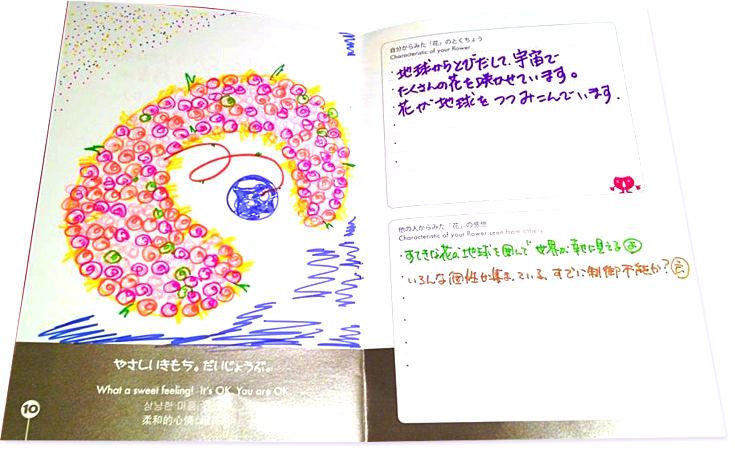 やさしいきもち。だいじょうぶ。
What a sweet feeling! It's OK. You are OK.
상냥한 마음.
柔和的心情
10
自分からみた「花」のとくちょう
Characteristic of your flower
・地球からとびだして、宇宙で
たくさんの花を咲かせています。
・花が地球をつつみこんでいます.
他の人からみた「花」の感想
Characteristic of your flower seen from others
・すてきな花が地球を囲んで世界が幸せに見える
・いろんな個性が集まっている、すでに制御不能か?